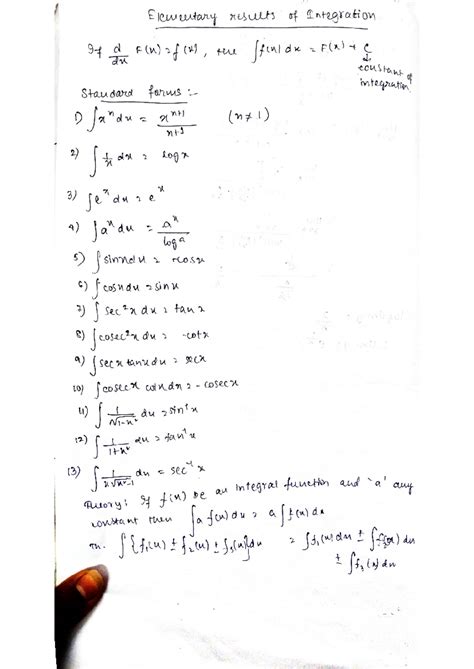 Elementary results of Integration
If d/dx F(x) = f(x), then ∫f(x) dx = F(x) + C
↓
constant of
integration
Standard forms :-
1) ∫xⁿ dx = xⁿ⁺¹/n+1 (n ≠ 1)
2) ∫ 1/x dx = log x
3) ∫eˣ dx = eˣ
4) ∫aˣ dx = aˣ/log a
5) ∫sinx dx = -cosx
6) ∫cosx dx = sinx
7) ∫sec²x dx = tan x
8) ∫cosec²x dx = -cotx
9) ∫secx tanx dx = secx
10) ∫cosecx cotx dx = -cosecx
11) ∫ 1/√1-x² dx = sin⁻¹x
12) ∫ 1/1+x² dx = tan⁻¹x
13) ∫ 1/x√x²-1 dx = sec⁻¹x
Theory: If f(x) be an integral function and 'a' any
constant then ∫a f(x) dx = a ∫f(x) dx
Th. ∫{f₁(x) ± f₂(x) ± f₃(x)}dx = ∫f₁(x) dx ± ∫f₂(x) dx
± ∫f₃(x) dx